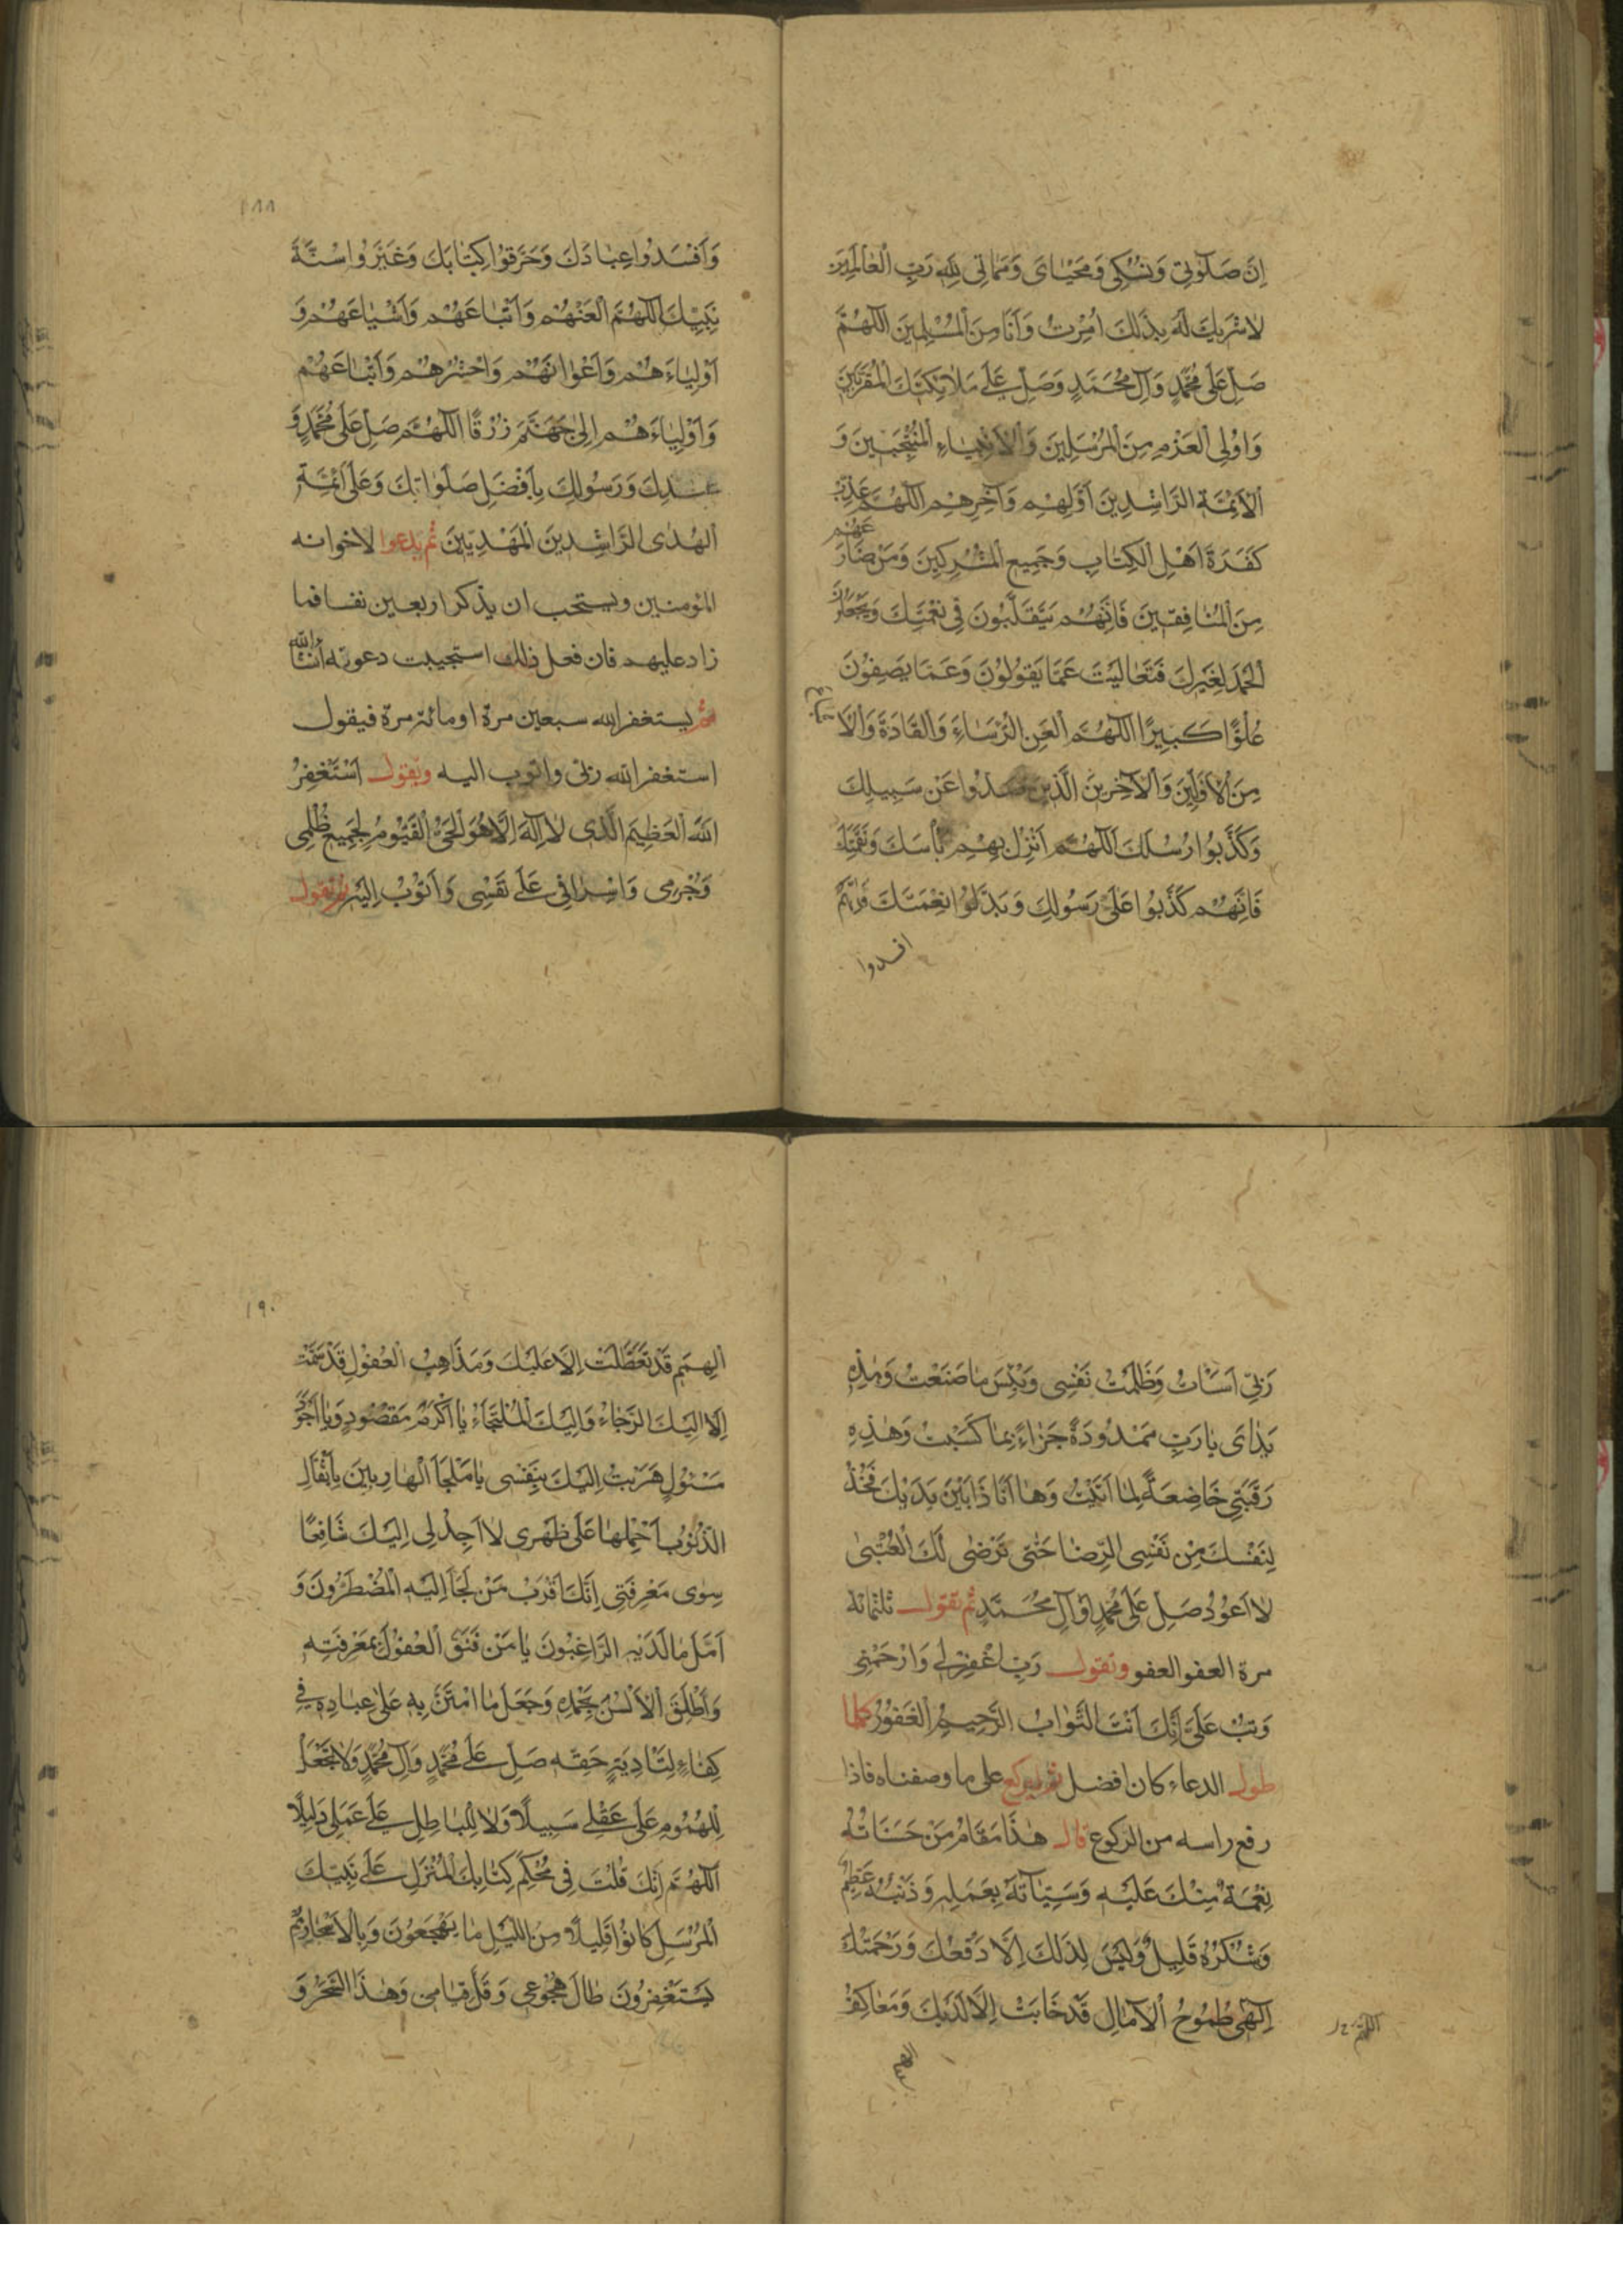 اِنَّ صَلَوتِی وَنُسُکِی وَمَحْیٰایَ وَمَمٰاتِی لِلّٰهِ رَبِّ الْعٰالَمِینَ
لٰا شَرِیكَ لَهُ بِذٰلِكَ اُمِرْتُ وَاَنَا مِنَ الْمُسْلِمینَ اَللّٰهُمَّ
صَلِّ عَلٰی مُحَمَّدٍ وَآلِ مُحَمَّدٍ وَصَلِّ عَلٰی مَلٰائِکَتِكَ الْمُقَرَّبینَ
وَاُوْلِی الْعَزْمِ مِنَ الْمُرْسَلِینَ وَالْاَنْبِیٰاءِ الْمُنْتَجَبِینَ وَ
الْاَئِمَّةِ الرّٰاشِدِینَ اَوَّلِهِمْ وَآخِرِهِمْ اَللّٰهُمَّ عَذِّبْ
كَفَرَةَ اَهْلِ الْكِتٰابِ وَجَمِیعَ الْمُشْرِكِینَ وَمَنْ ضٰارَعَهُمْ
مِنَ الْمُنٰافِقِینَ فَاِنَّهُمْ یَتَقَلَّبُونَ فِی نِعْمَتِكَ وَیَجْعَلُونَ
الْحَمْدَ لِغَیْرِكَ فَتَعٰالَیْتَ عَمّٰا یَقُولُونَ وَعَمّٰا یَصِفُونَ
عُلُوًّا كَبِیرًا اَللّٰهُمَّ الْعَنِ الرُّؤَسٰاءَ وَالْقٰادَةَ وَالْاَتْبٰاعَ
مِنَ الْاَوَّلِینَ وَالْآخِرِینَ الَّذِینَ صَدُّوا عَنْ سَبِیلِكَ
وَكَذَّبُوا رُسُلَكَ اَللّٰهُمَّ اَنْزِلْ بِهِمْ بَأْسَكَ وَنَقِمَتَكَ
فَاِنَّهُمْ كَذَّبُوا عَلٰی رَسُولِكَ وَبَدَّلُوا نِعْمَتَكَ
افسدوا
۱۸۸
وَاَفْسَدُوا عِبٰادَكَ وَحَرَّفُوا كِتٰابَكَ وَغَیَّرُوا سُنَّةَ
نَبِیِّكَ اَللّٰهُمَّ الْعَنْهُمْ وَاَتْبٰاعَهُمْ وَاَشْیٰاعَهُمْ وَ
اَوْلِیٰاءَهُمْ وَاَعْوٰانَهُمْ وَاحْشُرْهُمْ وَاَتْبٰاعَهُمْ
وَاَوْلِیٰاءَهُمْ اِلٰی جَهَنَّمَ زُرْقًا اَللّٰهُمَّ صَلِّ عَلٰی مُحَمَّدٍ
عَبْدِكَ وَرَسُولِكَ بِاَفْضَلِ صَلَوٰاتِكَ وَعَلٰی اَئِمَّةِ
الْهُدٰی الرّٰاشِدِینَ الْمَهْدِیِّینَ ثم یدعوا لاخوانه
المؤمنین ویستحب ان یذکر اربعین نفسا فما
زاد علیهم فان فعل ذلك استجیبت دعوته ان شاء الله
ثم یستغفر الله سبعین مرة او مائة مرة فیقول
استغفر الله ربی واتوب الیه ویقول اَسْتَغْفِرُ
اللّٰهَ الْعَظِیمَ الَّذِی لٰا اِلٰهَ اِلّٰا هُوَ الْحَیُّ الْقَیُّومُ لِجَمِیعِ ظُلْمِی
وَجُرْمِی وَاِسْرٰافِی عَلٰی نَفْسِی وَاَتُوبُ اِلَیْهِ ثم یقول
رَبِّی اَسَأْتُ وَظَلَمْتُ نَفْسِی وَبِئْسَ مٰا صَنَعْتُ وَهٰذِهِ
یَدٰایَ یٰا رَبِّ مَمْدُودَةٌ جَزٰاءً بِمٰا كَسَبْتُ وَهٰذِهِ
رَقَبَتِی خٰاضِعَةٌ لِمٰا اَتَیْتُ وَهٰا اَنَا ذٰا بَیْنَ یَدَیْكَ فَخُذْ
لِنَفْسِكَ مِنْ نَفْسِی الرِّضٰا حَتّٰی تَرْضٰی لَكَ الْعُتْبٰی
لٰا اَعُوْدُ صَلِّ عَلٰی مُحَمَّدٍ وَآلِ مُحَمَّدٍ ثم تقول ثلثمائة
مرة العفو العفو وتقول رَبِّ اغْفِرْ لِی وَارْحَمْنِی
وَتُبْ عَلَیَّ اِنَّكَ اَنْتَ التَّوّٰابُ الرَّحِیمُ الْغَفُورُ كلما
طول الدعاء كان افضل ثم یرکع علی ما وصفناه فاذا
رفع راسه من الركوع قال هٰذَا مَقٰامُ مَنْ حَسَنٰاتُهُ
نِعْمَةٌ مِنْكَ عَلَیْهِ وَسَیِّئٰاتُهُ بِعَمَلِهِ وَذَنْبُهُ عَظِیمٌ
وَشُكْرُهُ قَلِیلٌ وَلَیْسَ لِذٰلِكَ اِلّٰا دَفْعُكَ وَرَحْمَتُكَ
اِلٰهِی طُمُوحُ الْآمٰالِ قَدْ خٰابَتْ اِلّٰا لَدَیْكَ وَمَعٰاكِفُ
الهمم
۱۹۰
اَلْهِمَمِ قَدْ تَعَطَّلَتْ اِلّٰا عَلَیْكَ وَمَذٰاهِبُ الْعُقُولِ قَدْ سَمَتْ
اِلّٰا اِلَیْكَ الرَّجٰاءُ وَاِلَیْكَ الْمُلْتَجَاءُ یٰا اَكْرَمَ مَقْصُودٍ وَیٰا اَجْوَدَ
مَسْئُولٍ هَرَبْتُ اِلَیْكَ بِنَفْسِی یٰا مَلْجَاَ الْهٰارِبِینَ بِاَثْقٰالِ
الذُّنُوبِ اَحْمِلُهٰا عَلٰی ظَهْرِی لٰا اَجِدُ لِی اِلَیْكَ شٰافِعًا
سِوٰی مَعْرِفَتِی اِنَّكَ اَقْرَبُ مَنْ لَجَاَ اِلَیْهِ الْمُضْطَرُّونَ وَ
اَمَّلَ مٰا لَدَیْهِ الرّٰاغِبُونَ یٰا مَنْ فَتَقَ الْعُقُولَ بِمَعْرِفَتِهِ
وَاَطْلَقَ الْاَلْسُنَ بِحَمْدِهِ وَجَعَلَ مَا امْتَنَّ بِهِ عَلٰی عِبٰادِهِ فِی
كِفٰاءٍ لِتَأْدِیَةِ حَقِّهِ صَلِّ عَلٰی مُحَمَّدٍ وَآلِ مُحَمَّدٍ وَلٰا تَجْعَلْ
لِلْهُمُومِ عَلٰی عَقْلِی سَبِیلًا وَلٰا لِلْبٰاطِلِ عَلٰی عَمَلِی دَلِیلًا
اَللّٰهُمَّ اِنَّكَ قُلْتَ فِی مُحْكَمِ كِتٰابِكَ الْمُنْزَلِ عَلٰی نَبِیِّكَ
الْمُرْسَلِ كٰانُوا قَلِیلًا مِنَ اللَّیْلِ مٰا یَهْجَعُونَ وَبِالْاَسْحٰارِ هُمْ
یَسْتَغْفِرُونَ طٰالَ هُجُوعِی وَقَلَّ قِیٰامِی وَهٰذَا السَّحَرُ وَ